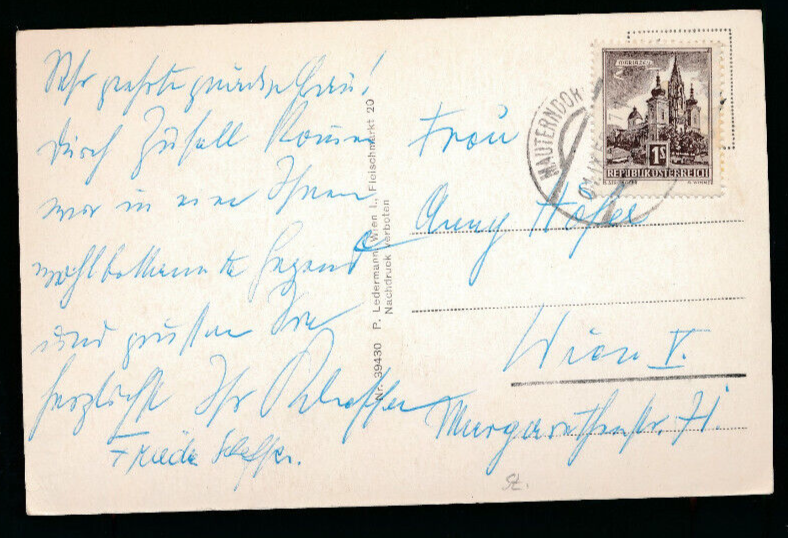 Sehr geehrte gnädige Frau!
Durch Zufall kommen
wir in eine Ihnen
wohlbekannte Gegend
und grüßen Sie
herzlichst Ihr
Friede
Nr. 39430 P. Ledermann, Wien I., Fleischmarkt 20
Nachdruck verboten
MAUTERNDOR
REPUBLIK ÖSTERREICH
1S
MARIAZELL
Frau
Anny Hofer
Wien V.
Margarethenstr. 71.
St.